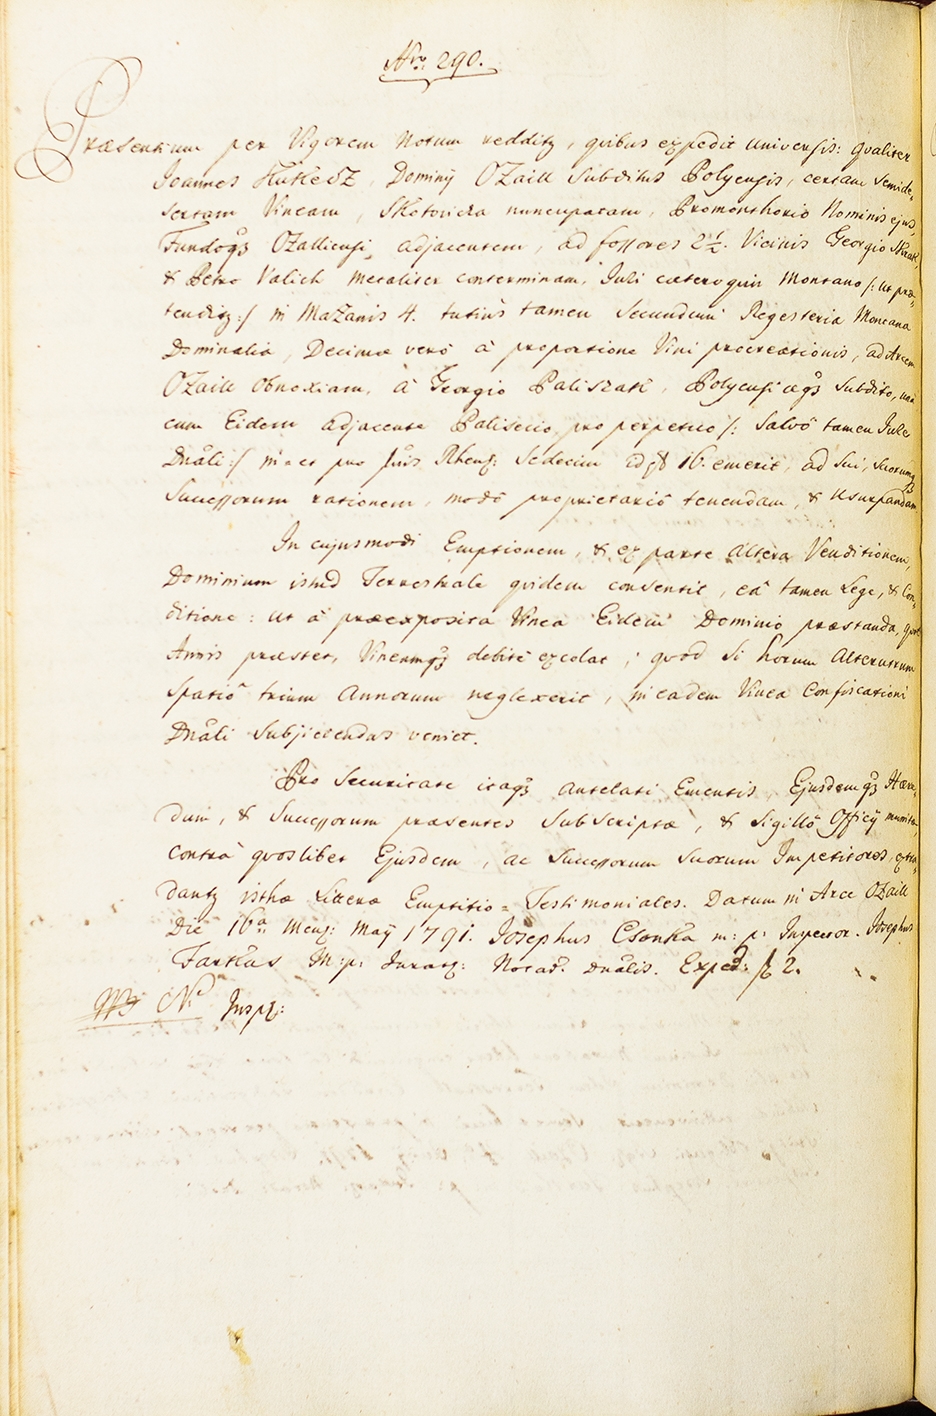 Nro: 290.
Præsentium per Vigorem Notum redditq, quibus expedit universis: qualiter
Joannes Dominij OZaill Subditus Polyensis, certam Semide-
sertam Vineam, Sketovicza nuncupatam, Promonthorio Nominis ejus,
Fundoq3 Ozalliensi adjacentem, ad fossores 2½. Vicinis Georgio
& Petro Valich metaliter conterminam, Juli cæteroquin Montano /: ut præ-
tenditq :/ in MaZanis 4. tutius tamen Secundum Regesteria Montana
Dominalia, Decimæ verò à proportione Vini procreationis, ad Arcem
OZaill obnoxiam, à Georgio PaliSzak, Polyensi æq3 Subdito, una
cum Eidem adjacente Paliseio pro perpetuo /: Salvô tamen Jure
Dnâli :/ in et pro flnis Rheng: Sedecim id est 16. emerit, ad Sui, Suorumq3
Successorum rationem, modô proprietariô tenendam, & Usurpandam
In cujusmodi Emptionem, & ex parte altera Venditionem,
Dominium istud Terrestrale quidem consentit, eâ tamen Lege, & Con-
ditione: ut â præexposita Vinea Eidem Dominio præstanda, quot
Annis præstet, Vineamq3 debitè excolat; quod Si horum Alterutrum
Spatiô trium Annorum neglexerit, in eadem Vinea Confiscationi
Dnâli Subjiciendus veniet.
Pro Securitate itaq3 antelati Ementis, Ejusdemq3 Hære-
dum, & Successorum præsentes SubScriptæ, & Sigillô Officij munitæ,
Contrà quoslibet Ejusdem, ac Successorum Suorum Impetitores, extra-
dantq isthæ Litteræ Emptitio = Testimoniales. Datum in Arce OZaill
Die 16a Meng: Maÿ 1791. Josephus Csonka m: p: Inspector. Josephus
Farkas M:p: Juratq: Notar. dnâlis. Exped: f 2.
Nᵒ Inspq: